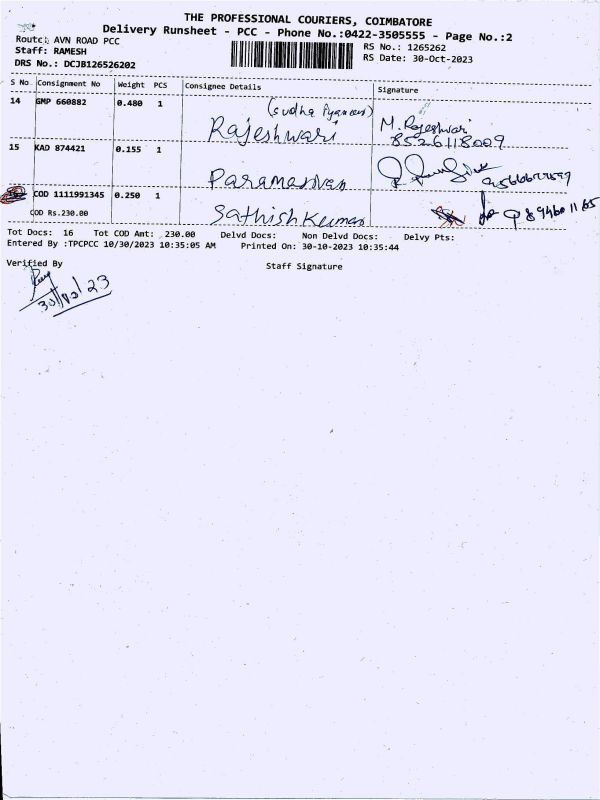 THE PROFESSIONAL COURIERS, COIMBATORE
Delivery Runsheet - PCC - Phone No.:0422-3505555 - Page No.:2
Route: AVN ROAD PCC
Staff: RAMESH
DRS No.: DCJB126526202
RS No.: 1265262
RS Date: 30-Oct-2023
S No Consignment No Weight PCS Consignee Details Signature
14 GMP 660882 0.480 1 Rajeshwari M. Rajeshwari
8526118009
15 KAD 874421 0.155 1 Paramasivan
COD 1111991345 0.250 1 Sathish Kumar
COD Rs.230.00
Tot Docs: 16 Tot COD Amt: 230.00 Delvd Docs: Non Delvd Docs: Delvy Pts:
Entered By :TPCPCC 10/30/2023 10:35:05 AM Printed On: 30-10-2023 10:35:44
Verified By Staff Signature
30/10/23